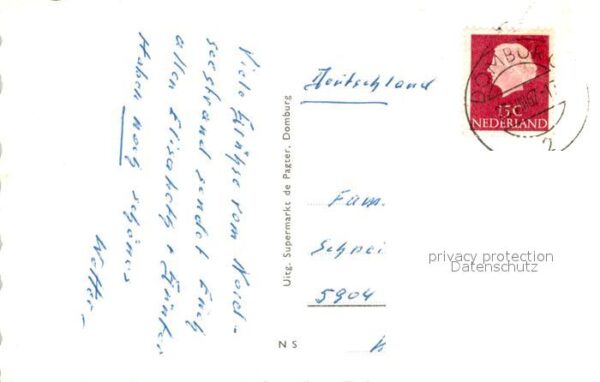 Viele Grüße vom Nord-
seestrand sendet Euch
allen Elisabeth + Günter
Haben noch schönes
Wetter.
Uitg. Supermarkt de Pagter, Domburg
N S
Deutschland
DOMBURG
15C
NEDERLAND
2
Fam.
Schnei
5904
privacy protection
Datenschutz